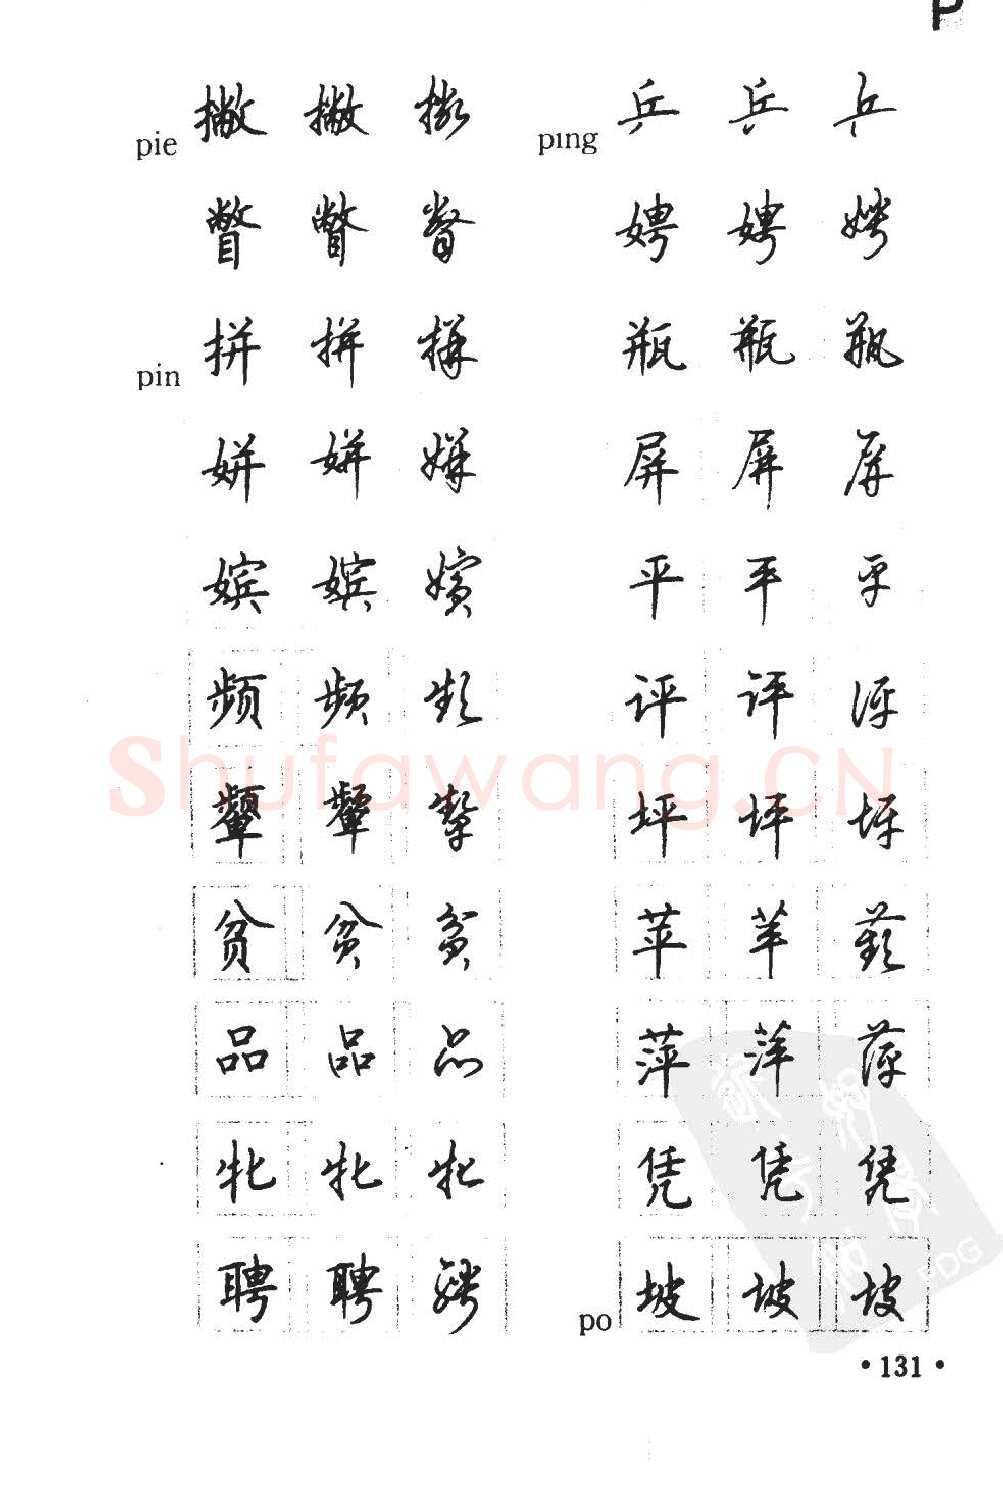 P
pie 撇 撇 撇
瞥 瞥 瞥
pin 拼 拼 拼
姘 姘 姘
嫔 嫔 嫔
频 频 频
颦 颦 颦
贫 贫 贫
品 品 品
牝 牝 牝
聘 聘 聘
ping 乒 乒 乒
娉 娉 娉
瓶 瓶 瓶
屏 屏 屏
平 平 平
评 评 评
坪 坪 坪
苹 苹 苹
萍 萍 萍
凭 凭 凭
po 坡 坡 坡
Shufawang.CN
PDG
·131·